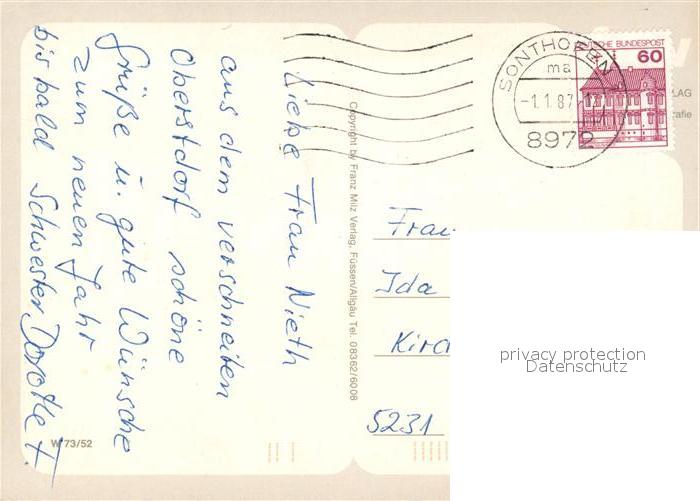 Liebe Frau Nieth
aus dem verschneiten
Oberstdorf schöne
Grüße u. gute Wünsche
zum neuen Jahr
bis bald Schwester Dorothe F.
Copyright by Franz Milz Verlag, Füssen/Allgäu Tel. 08362/6008
W 73/52
SONTHOFEN
ma
-1.1.87.-17
8972
DEUTSCHE BUNDESPOST
60
LAG
rafie
Frau
Ida
Kirc
5231
privacy protection
Datenschutz